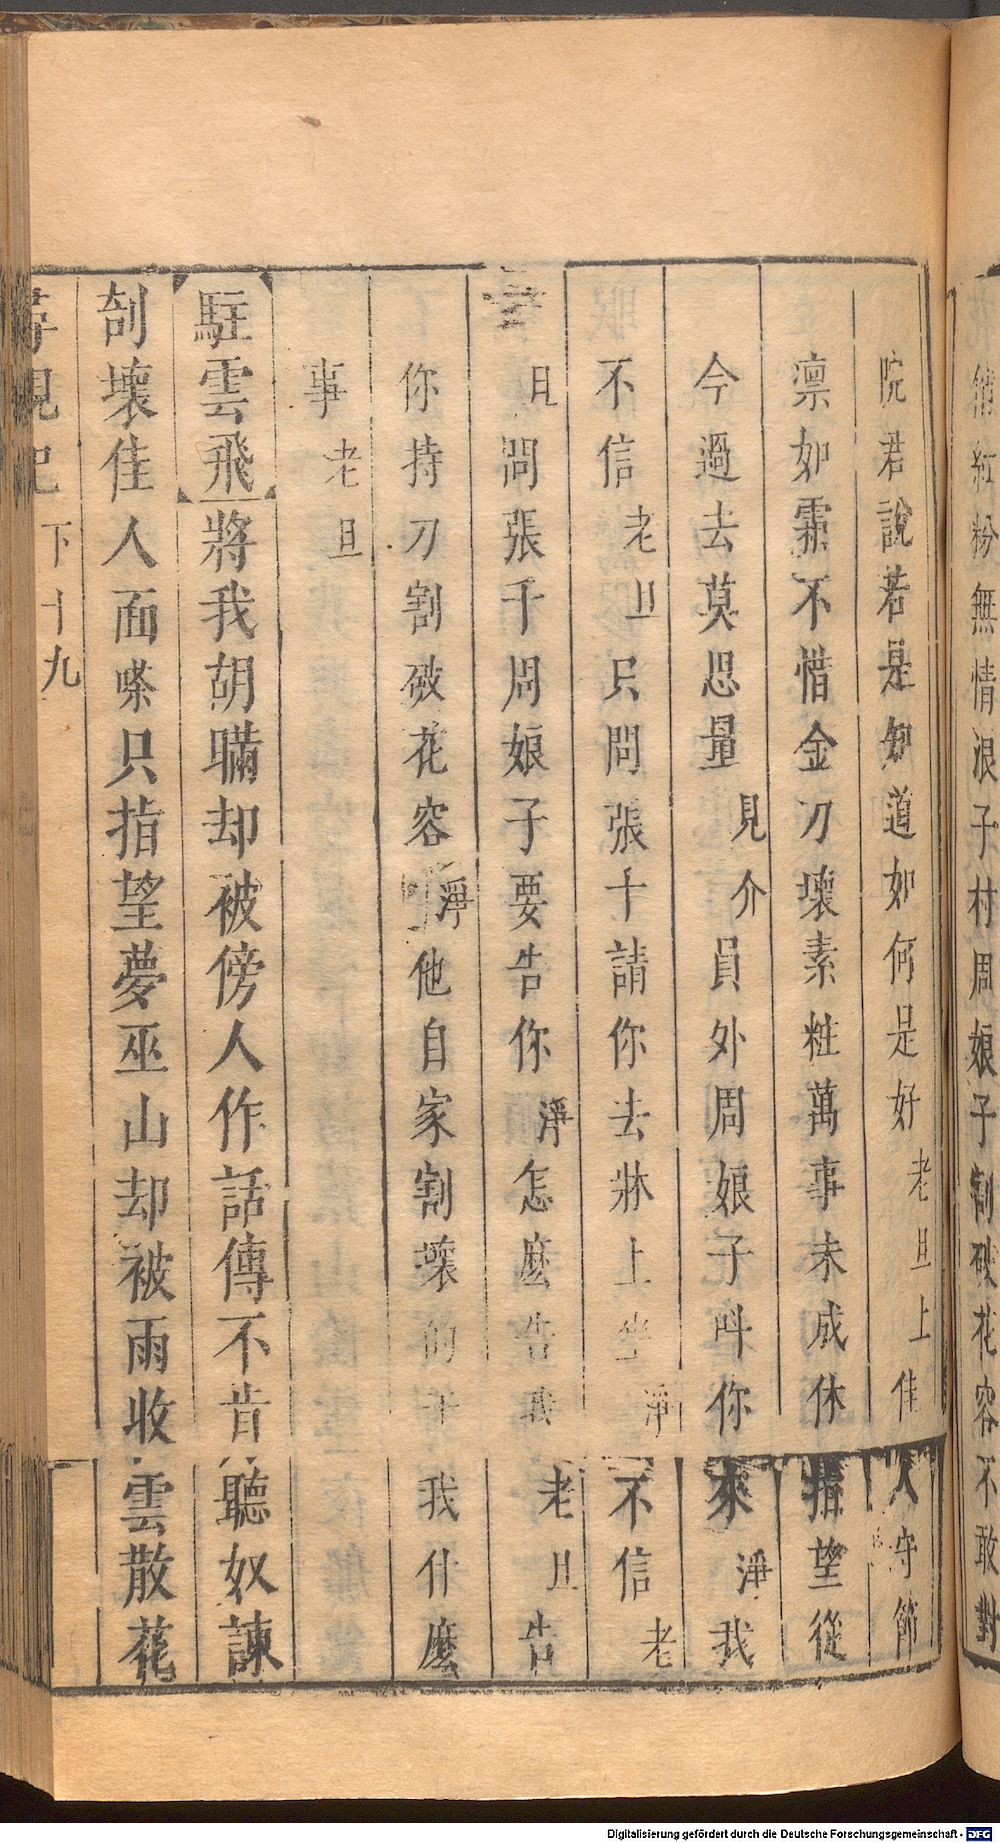 銷紅粉無情浪子村周娘子割破花容不敢對
院君說若是知道如何是好老旦上佳人守節
凛如霜不惜金刀壞素粧萬事未成休指望從
今過去莫思量見介員外周娘子呌你來淨我
不信老旦只問張千請你去牀上坐淨不信老
旦問張千周娘子要告你淨怎麼告我老旦告
你持刀割破花容淨他自家割壞的干我什麼
事老旦
駐雲飛將我胡瞞却被傍人作話傳不肯聽奴諫
刮壞佳人面嗏只指望夢巫山却被雨收雲散花
下十九
Digitalisierung gefördert durch die Deutsche Forschungsgemeinschaft - DFG